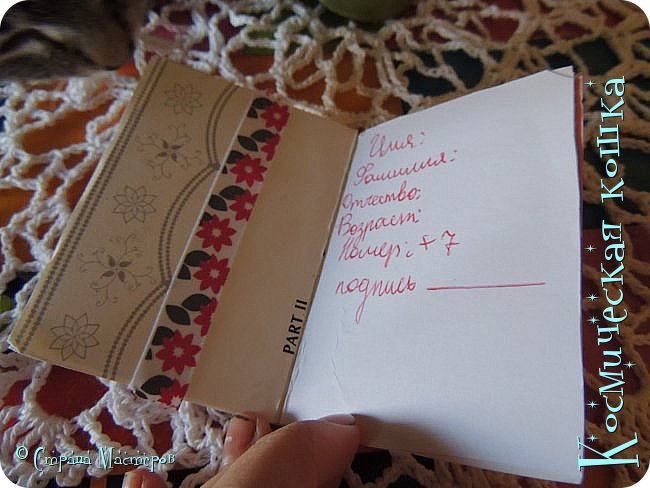 Имя:
Фамилия:
Отчество:
Возраст:
Номер: +7
подпись
PART II
Космическая кошка
© Страна Мастеров